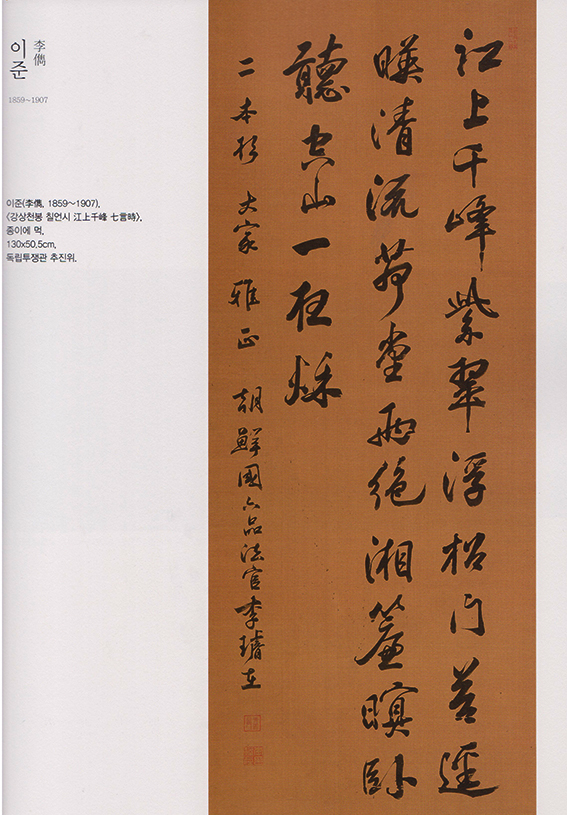 李儁
이준
1859~1907
이준(李儁, 1859~1907),
《강상천봉 칠언시 江上千峰 七言時》,
종이에 먹,
130x50.5cm,
독립투쟁관 추진위.
江上千峰紫翠浮松门苔逕
暎清流荷堂雨絶湘簾暝臥
聽空山一秌
二本杉 大家 雅正 朝鮮國六品法官李璿在